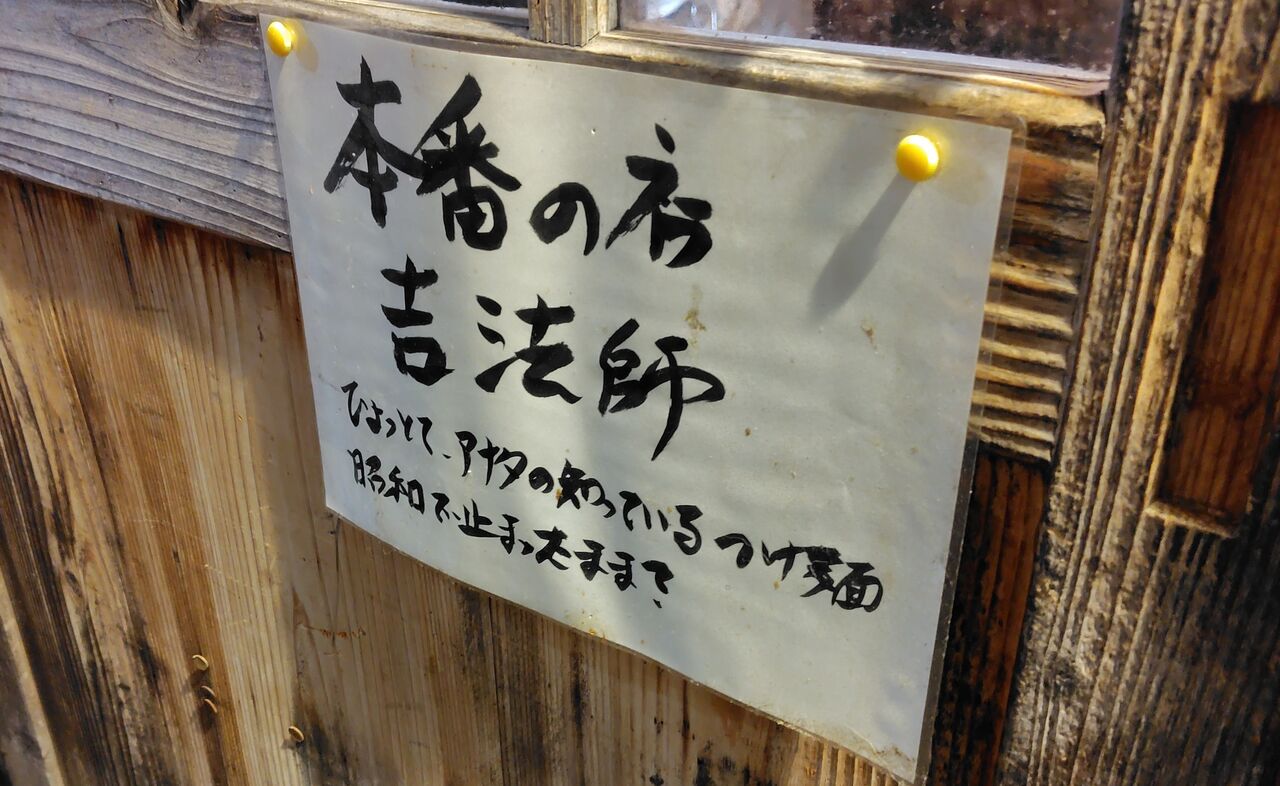 本番の
吉法師
ひょっとして、アナタの知っているつけ麺
昭和で止まったまま？